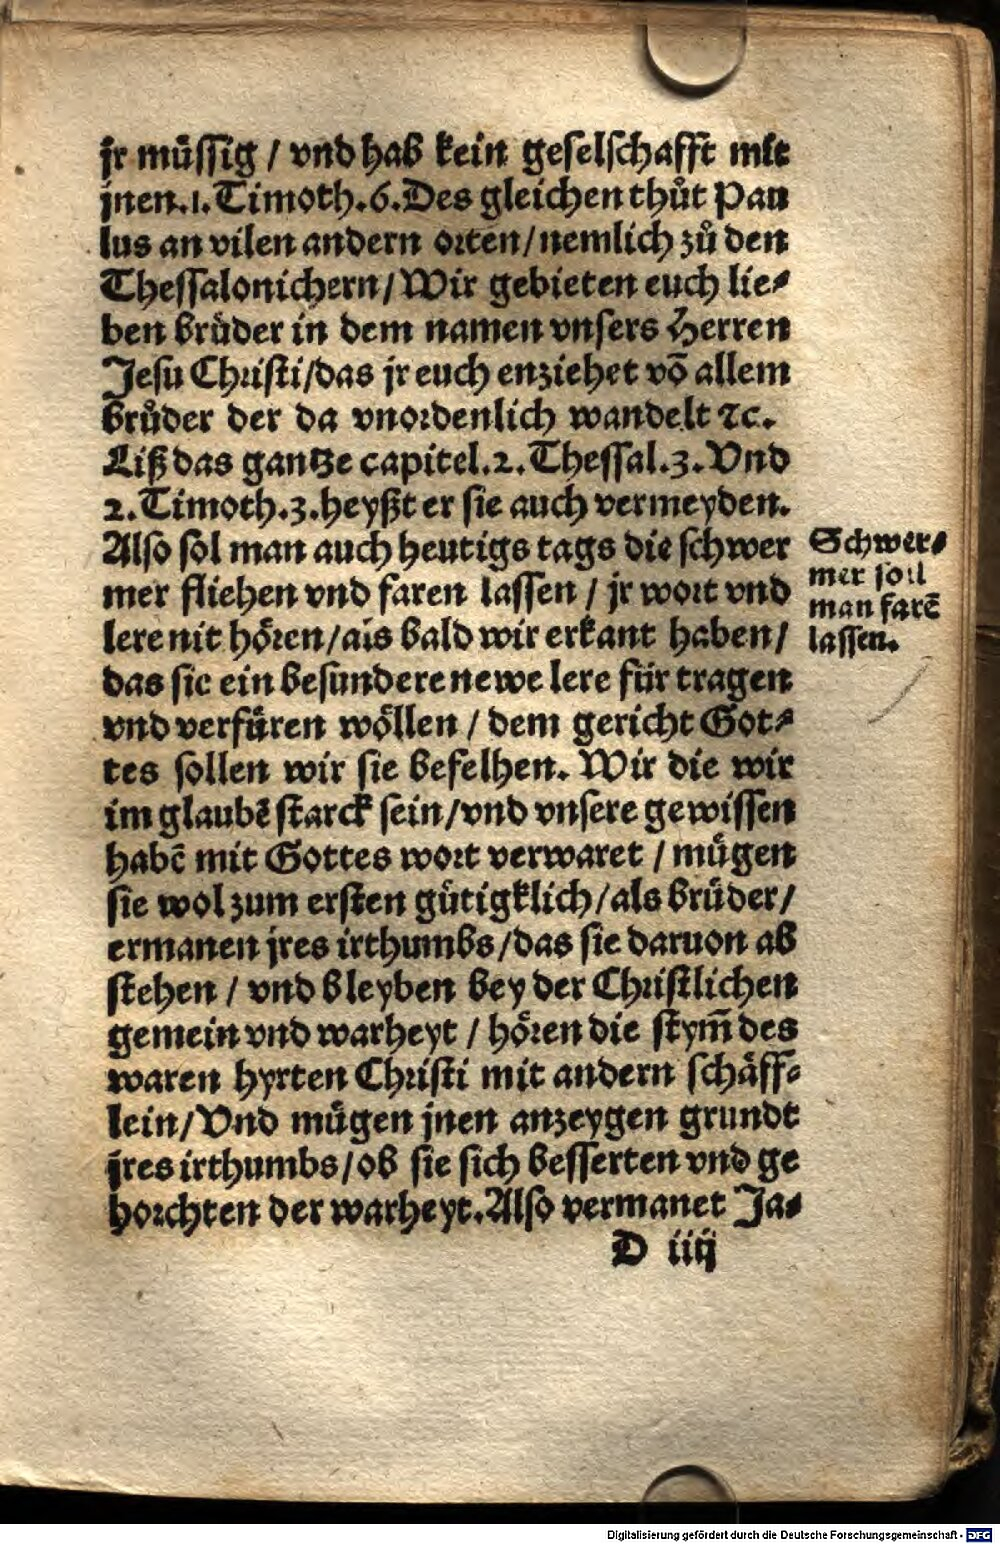 jr müssig / vnd hab kein geselschafft mit
jnen.1.Timoth.6.Des gleichen thůt Pau
lus an vilen andern orten/nemlich zů den
Thessalonichern/Wir gebieten euch lie⸗
ben brüder in dem namen vnsers Herren
Jesu Christi/das jr euch enziehet võ allem
brůder der da vnordenlich wandelt ⁊c.
Liß das gantze capitel.2.Thessal.3.Vnd
2.Timoth.3.heyßt er sie auch vermeyden.
Also sol man auch heutigs tags die schwer
mer fliehen vnd faren lassen / jr wort vnd
lere nit hören/als bald wir erkant haben/
das sie ein besundere newe lere für tragen
vnd verfüren wöllen / dem gericht Got⸗
tes sollen wir sie befelhen. Wir die wir
im glaubẽ starck sein/vnd vnsere gewissen
habẽ mit Gottes wort verwaret / mügen
sie wol zum ersten gütigklich/als brüder/
ermanen jres irthumbs/das sie daruon ab
stehen / vnd bleyben bey der Christlichen
gemein vnd warheyt / hören die stym̃ des
waren hyrten Christi mit andern schäff⸗
lein/Vnd mügen jnen anzeygen grundt
jres irthumbs/ob sie sich besserten vnd ge
horchten der warheyt.Also vermanet Ja⸗
D iiij
Schwer⸗
mer soll
man farẽ
lassen.
Digitalisierung gefördert durch die Deutsche Forschungsgemeinschaft - DFG